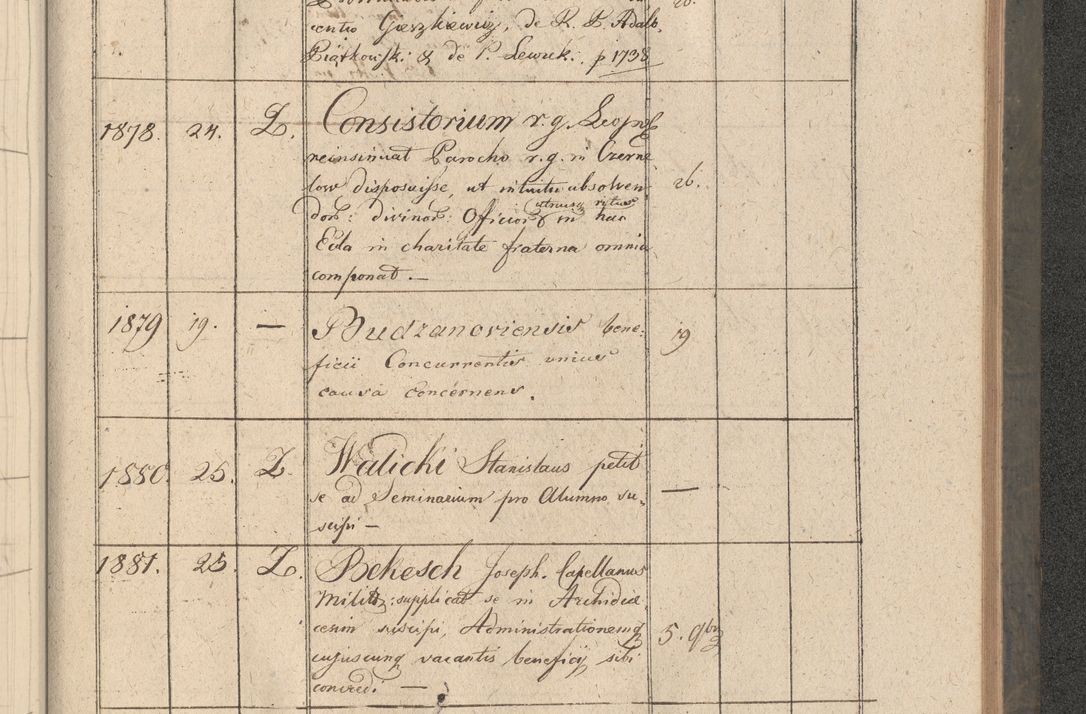 centio Gieszkiewicz, de R. P. Adalb.
Piątkowski. & de P. Lewick: p 1738
1878. 24. L. Consistorium r. g. Leopol
reinsinuat Parocho r. g. in Czerne
low disposuisse, ut intuitu absolven 26.
dor: divinor: Officior in hac
utriusq ritus
Ecla in charitate fraterna omnia
componat. —
1879 19. — Budzanoviensis bene: 19
ficii Concurrentis unius
causa concernens.
1880. 25. L. Walicki Stanislaus petit
se ad Seminarium pro Alumno su- —
scipi —
1881. 25. L. Bekesch Joseph. Capellanus
Milit: supplicat se in Archidiæ
cesim suscipi, Administrationemq 5. 9br
cujuscunq vacantis beneficij sibi
concredi. —